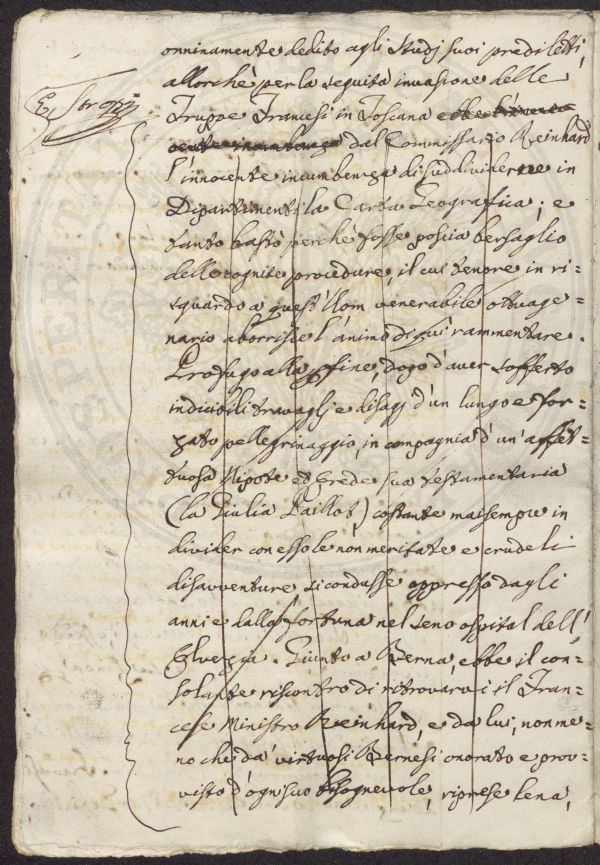 onninamente dedito agli Studj suoi prediletti,
allorchè per la seguita invasione delle
Truppe Francesi in Toscana ebbe
dal Commissario Reinhard
l'innocente incumbenza di suddividerne in
Dipartimenti la Carta Geografica; e
tanto bastò perchè fosse poscia bersaglio
delle cognite procedure, il cui tenore in ri=
sguardo a quest'Uom venerabile ottuage=
nario aborrisce l'animo di quì rammentare.
Profugo alla fine, dopo d'aver sofferto
indicibili travaglj e disagj d'un lungo e for=
zato pellegrinaggio, in compagnia d'un'affet=
tuosa Nipote ed Erede sua testamentaria
(la Giulia Baillot) costante maisempre in
divider con esso le non meritate e crudeli
disavventure si condusse oppresso dagli
anni e dalla sfortuna nel seno ospital dell'
Elvezia. Giunto a Berna, ebbe il con=
solante riscontro di ritrovarvi il Fran=
cese Ministro Reinhard, e da lui, non me=
no che da' virtuosi Bernesi onorato e prov=
visto d'ogni suo bisognevole, riprese lena,